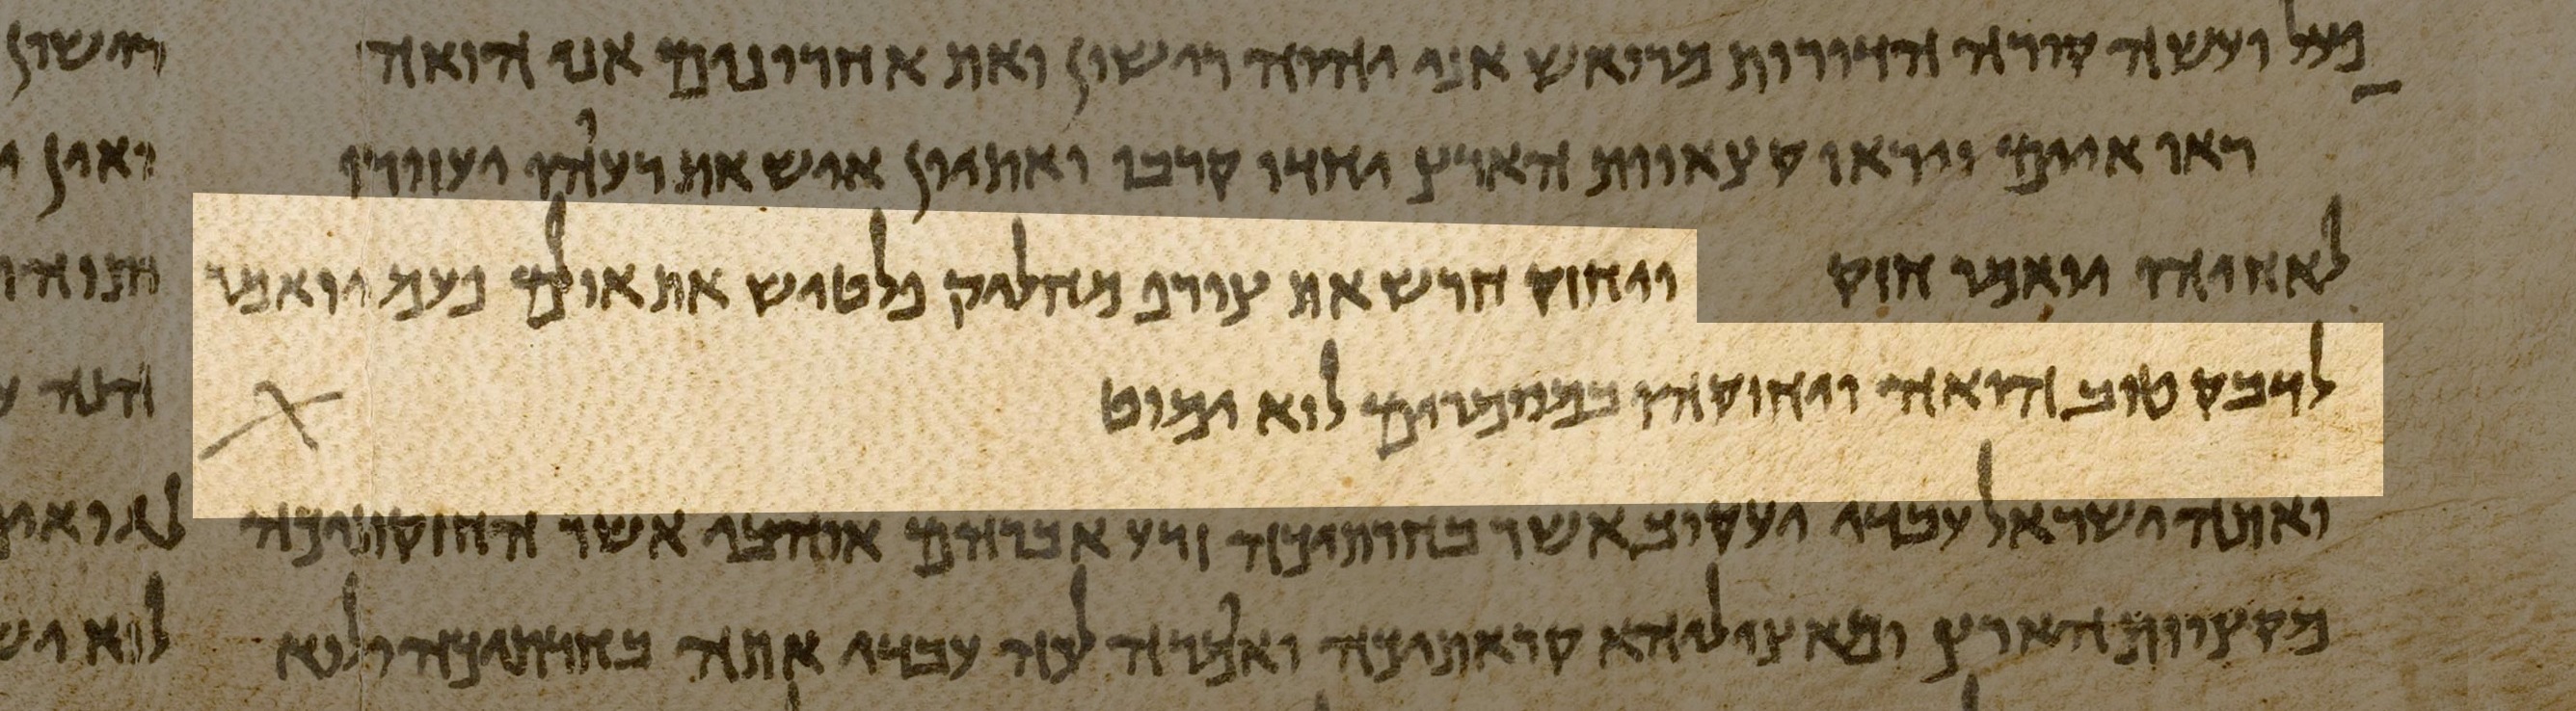 פעל ועשה קורה הדורות מרואש אני יהוה רישון ואת אחרונים אני הואה
ראו איים ויראו קצאוות הארץ יחדו קרבו ואתיון איש את רעהו יעזורו
לאחיהו יואמר חזק ויחזק חרש את צורף מחליק פלטיש את אולם פעם יואמר
לדבק טוב הואה ויחזקהו במסמרים לוא ימוט
ואתה ישראל עבדי יעקוב אשר בחרתיכה זרע אברהם אוהבי אשר החזקתיכה
מקצוות הארץ ומאציליהא קראתיכה ואומרה לכה עבדי אתה בחרתיכה ולוא
רישון
ואין